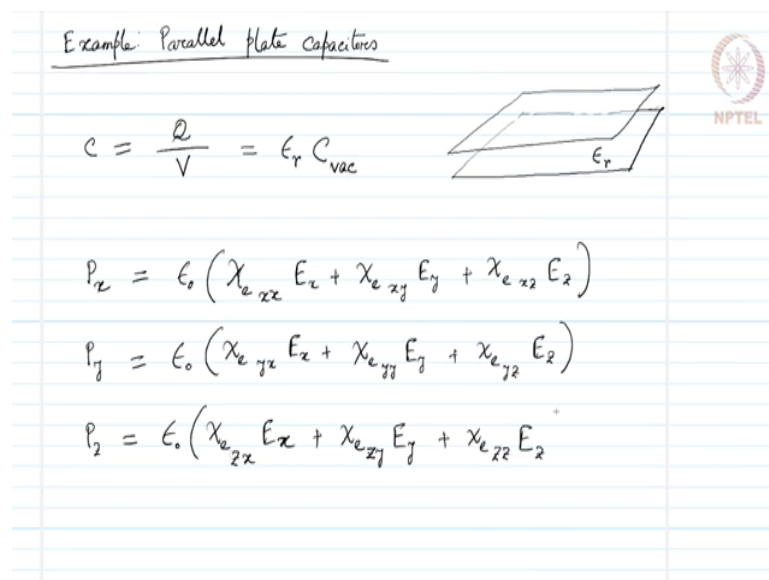 Example: Parallel plate capacitors
NPTEL
C = Q/V = ϵᵣ C_vac
ϵᵣ
Pₓ = ϵ₀ (χ_e xx E_x + χ_e xy E_y + χ_e xz E_z)
P_y = ϵ₀ (χ_e yx E_x + χ_e yy E_y + χ_e yz E_z)
P_z = ϵ₀ (χ_e zx E_x + χ_e zy E_y + χ_e zz E_z